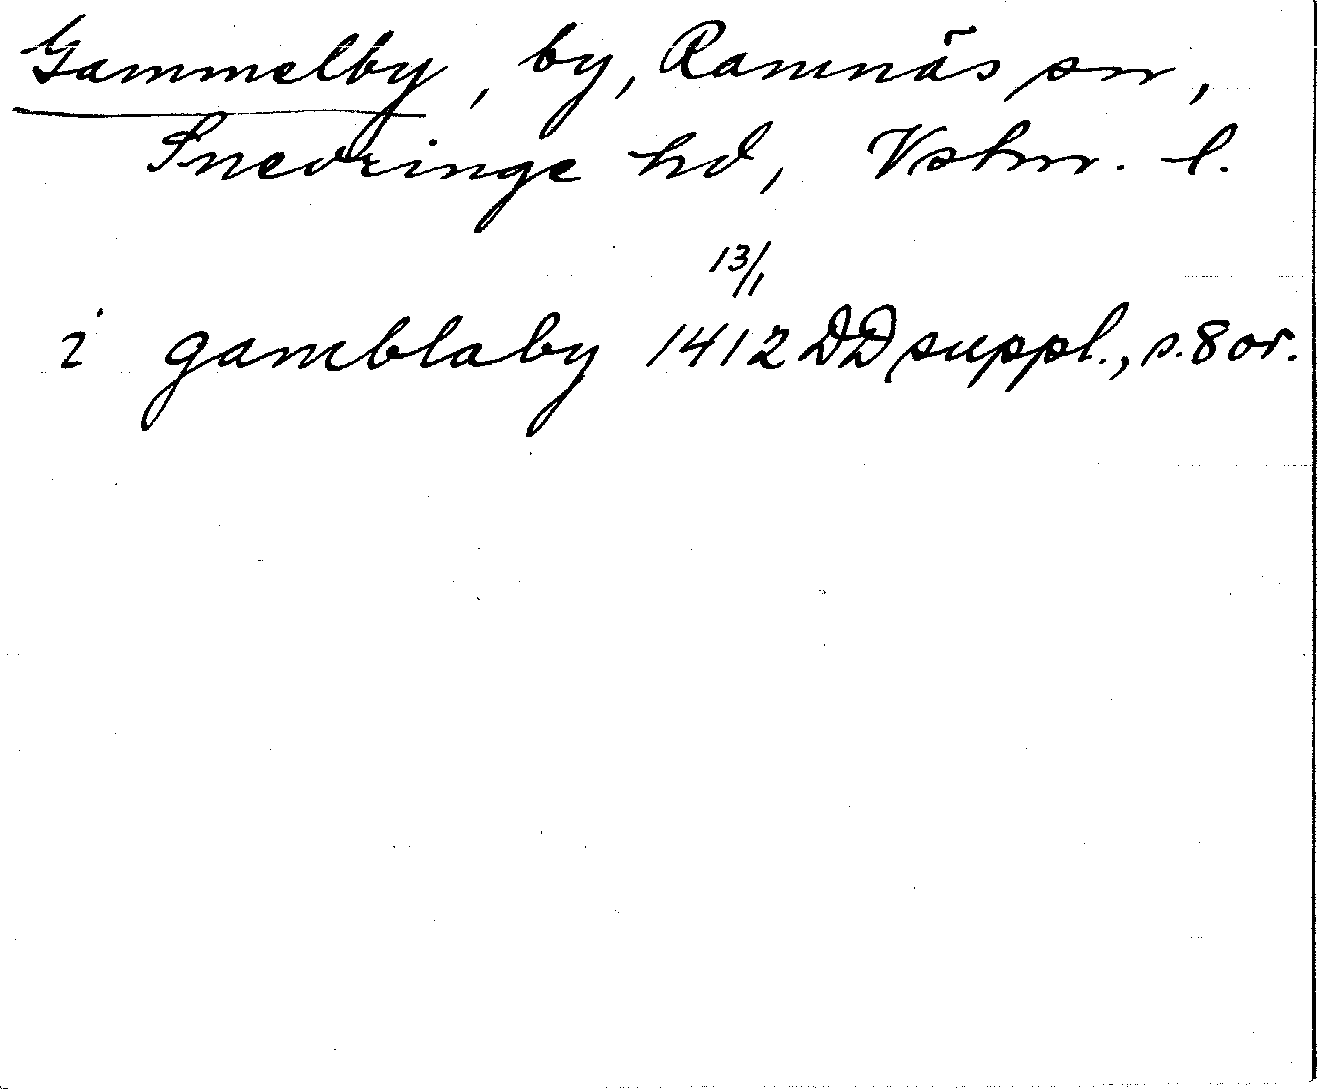 Gammelby, by, Ramnäs sn,
Snevringe hd, Vstm. l.
13/1
i gamblaby 1412 DD suppl., s. 8 or.